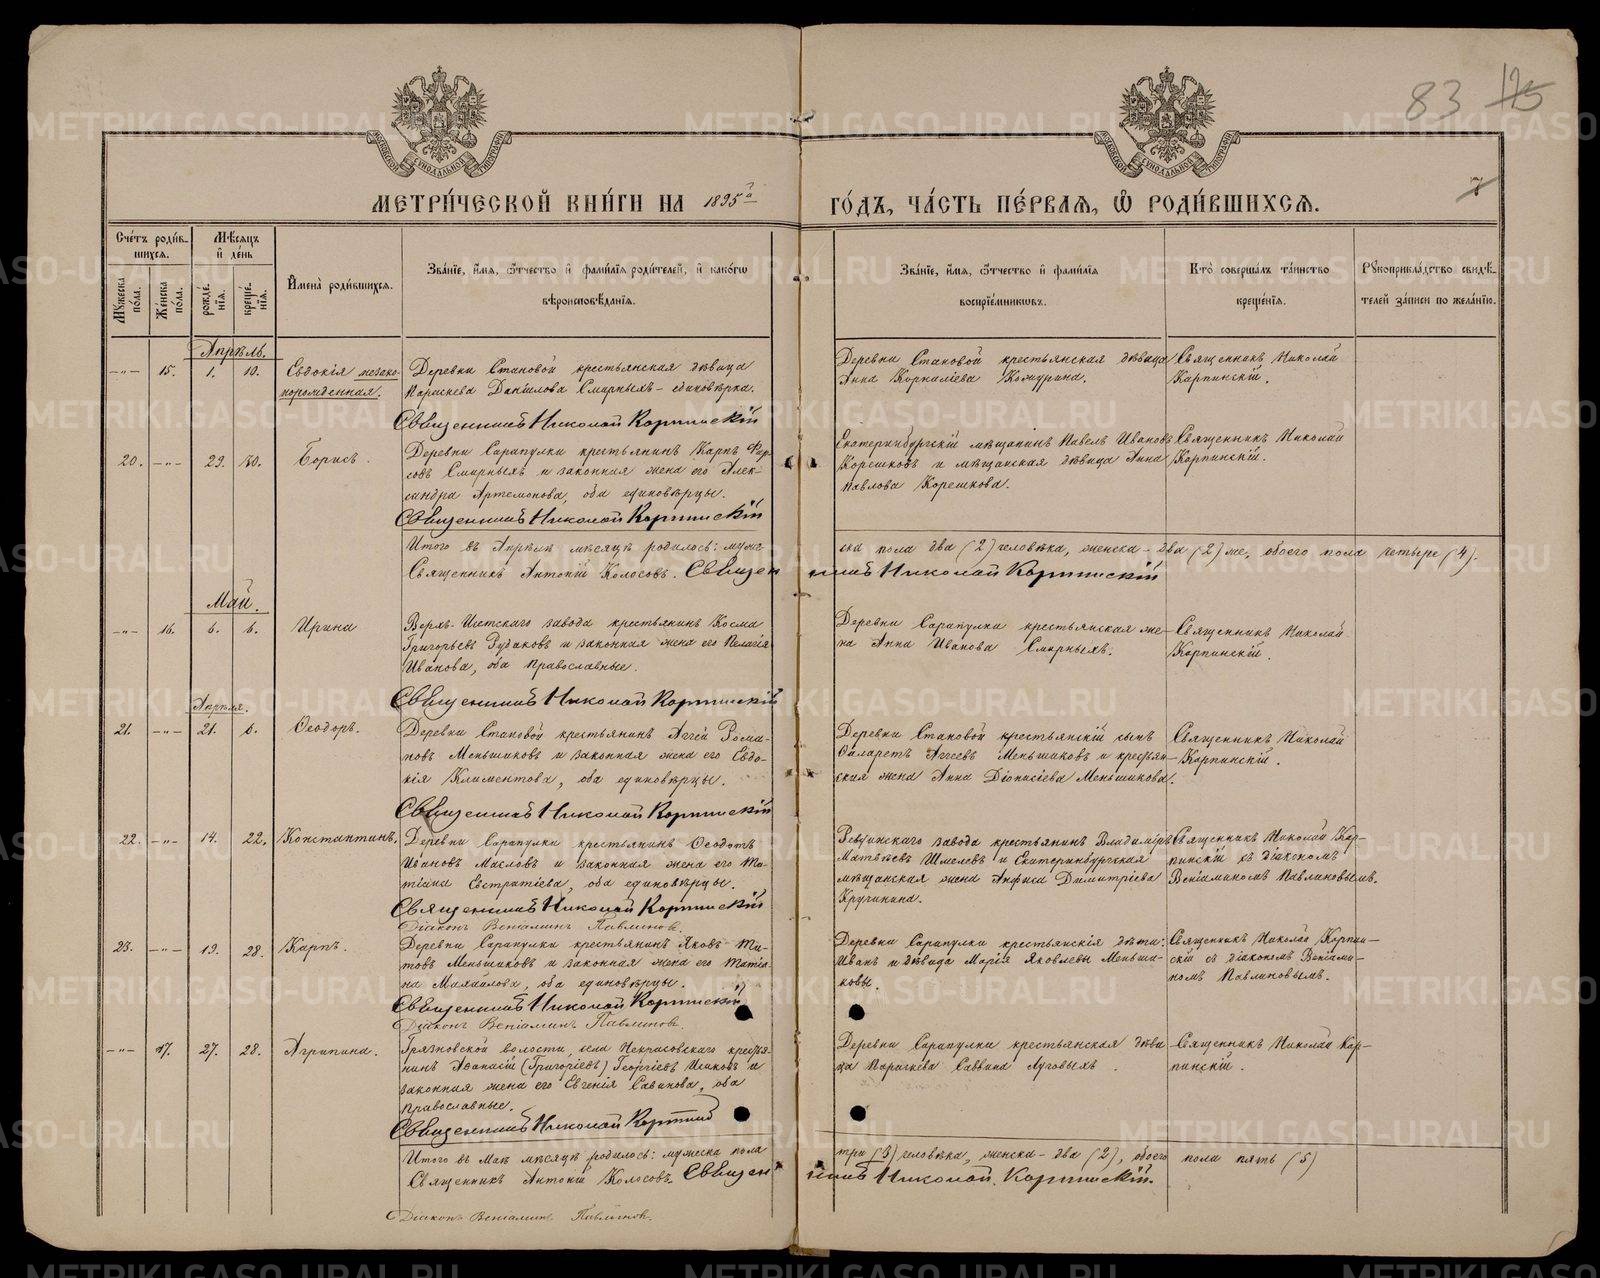 83 175
7
МЕТРИ́ЧЕСКОЙ КНИ́ГИ НА 1895 го́дъ, ча́сть пе́рвая, ѽ роди́вшихся.
Сче́тъ роди́вшихся.
Мꙋ́жеска по́ла.
Же́нска по́ла.
Мѣ́сяцъ и҆ де́нь
рожде́нїя.
креще́нїя.
И҆мена̀ роди́вшихся.
Зва́нїе, и҆́мя, ѻ҆́тчество и҆ фами́лїя роди́телей, и҆ како́гѡ
вѣроисповѣ́данїя.
Зва́нїе, и҆́мя, ѻ҆́тчество и҆ фами́лїя
воспрїе́мникѡвъ.
Кто̀ соверша́лъ та́инство
креще́нїя.
Рꙋкоприкла́дство свидѣ́телей за́писи по жела́нїю.
Апрѣль.
-"- 15. 1. 10. Евдокія незаконнорожденная.
Деревни Становой крестьянская дѣвица
Параскева Данiилова Смирныхъ - единовѣрка.
Священникъ Николай Карпинскій
Деревни Становой крестьянская дѣвица
Анна Корнилiева Кожурина.
Священникъ Николай
Карпинскій.
20. -"- 29. 30. Борисъ.
Деревни Сарапулки крестьянинъ Карпъ
Смирныхъ и законная жена его Алек-
сандра Артемонова, оба единовѣрцы.
Священникъ Николай Карпинскій
Екатеринбургскій мѣщанинъ Павелъ Ивановъ
Корешковъ и мѣщанская дѣвица Анна
Павлова Корешкова.
Священникъ Николай
Карпинскій.
Итого въ Апрѣлѣ мѣсяцѣ родилось: муже-
ска пола два (2) человѣка, женска - два (2) же, обоего пола четыре (4).
Священникъ Антоній Колосовъ. Священникъ Николай Карпинскій
Май.
-"- 16. 6. 6. Ирина
Верхъ-Исетскаго завода крестьянинъ Косма
Григорьевъ Рудаковъ и законная жена его Пелагія
Иванова, оба православные.
Священникъ Николай Карпинскій
Деревни Сарапулки крестьянская же-
на Анна Иванова Смирныхъ.
Священникъ Николай
Карпинскій.
Апрѣля.
21. -"- 21. 6. Ѳеодоръ.
Деревни Становой крестьянинъ Аггей Рома-
новъ Меньшиковъ и законная жена его Евдо-
кія Климентова, оба единовѣрцы.
Священникъ Николай Карпинскій
Деревни Становой крестьянскій сынъ
Филаретъ Аггеевъ Меньшиковъ и крестьян-
ская жена Анна Діонисіева Меньшикова.
Священникъ Николай
Карпинскій.
22. -"- 14. 22. Константинъ.
Деревни Сарапулки крестьянинъ Ѳеодотъ
Ивановъ Масловъ и законная жена его Та-
тіана Евстратіева, оба единовѣрцы.
Священникъ Николай Карпинскій
Діаконъ Веніаминъ Павлиновъ.
Ревдинскаго завода крестьянинъ Владиміръ
Матвѣевъ Шмелевъ и Екатеринбургская
мѣщанская жена Анфиса Димитріева
Кручинина.
Священникъ Николай Кар-
пинскій съ діакономъ
Веніаминомъ Павлиновымъ.
23. -"- 19. 28. Карпъ.
Деревни Сарапулки крестьянинъ Яковъ Ти-
товъ Меньшиковъ и законная жена его Татіа-
на Михайлова, оба единовѣрцы.
Священникъ Николай Карпинскій
Діаконъ Веніаминъ Павлиновъ.
Деревни Сарапулки крестьянскія дѣти:
Иванъ и дѣвица Марія Яковлевы Меньши-
ковы.
Священникъ Николай Карпин-
скій съ діакономъ Веніами-
номъ Павлиновымъ.
-"- 17. 27. 28. Агрипина.
Грязновской волости, села Некрасовскаго крестья-
нинъ Аѳанасій (Григоріевъ) Георгіевъ и
законная жена его Евгенія Савинова, оба
православные.
Священникъ Николай
Деревни Сарапулки крестьянская дѣви-
ца Параскева Саввина Луговыхъ.
Священникъ Николай Кар-
пинскій.
Итого въ Маѣ мѣсяцѣ родилось: мужеска пола
три (3) человѣка, женска - два (2), обоего пола пять (5)
Священникъ Антоній Колосовъ. Священникъ Николай Карпинскій.
Діаконъ Веніаминъ Павлиновъ.
METRIKI.GASO-URAL.RU